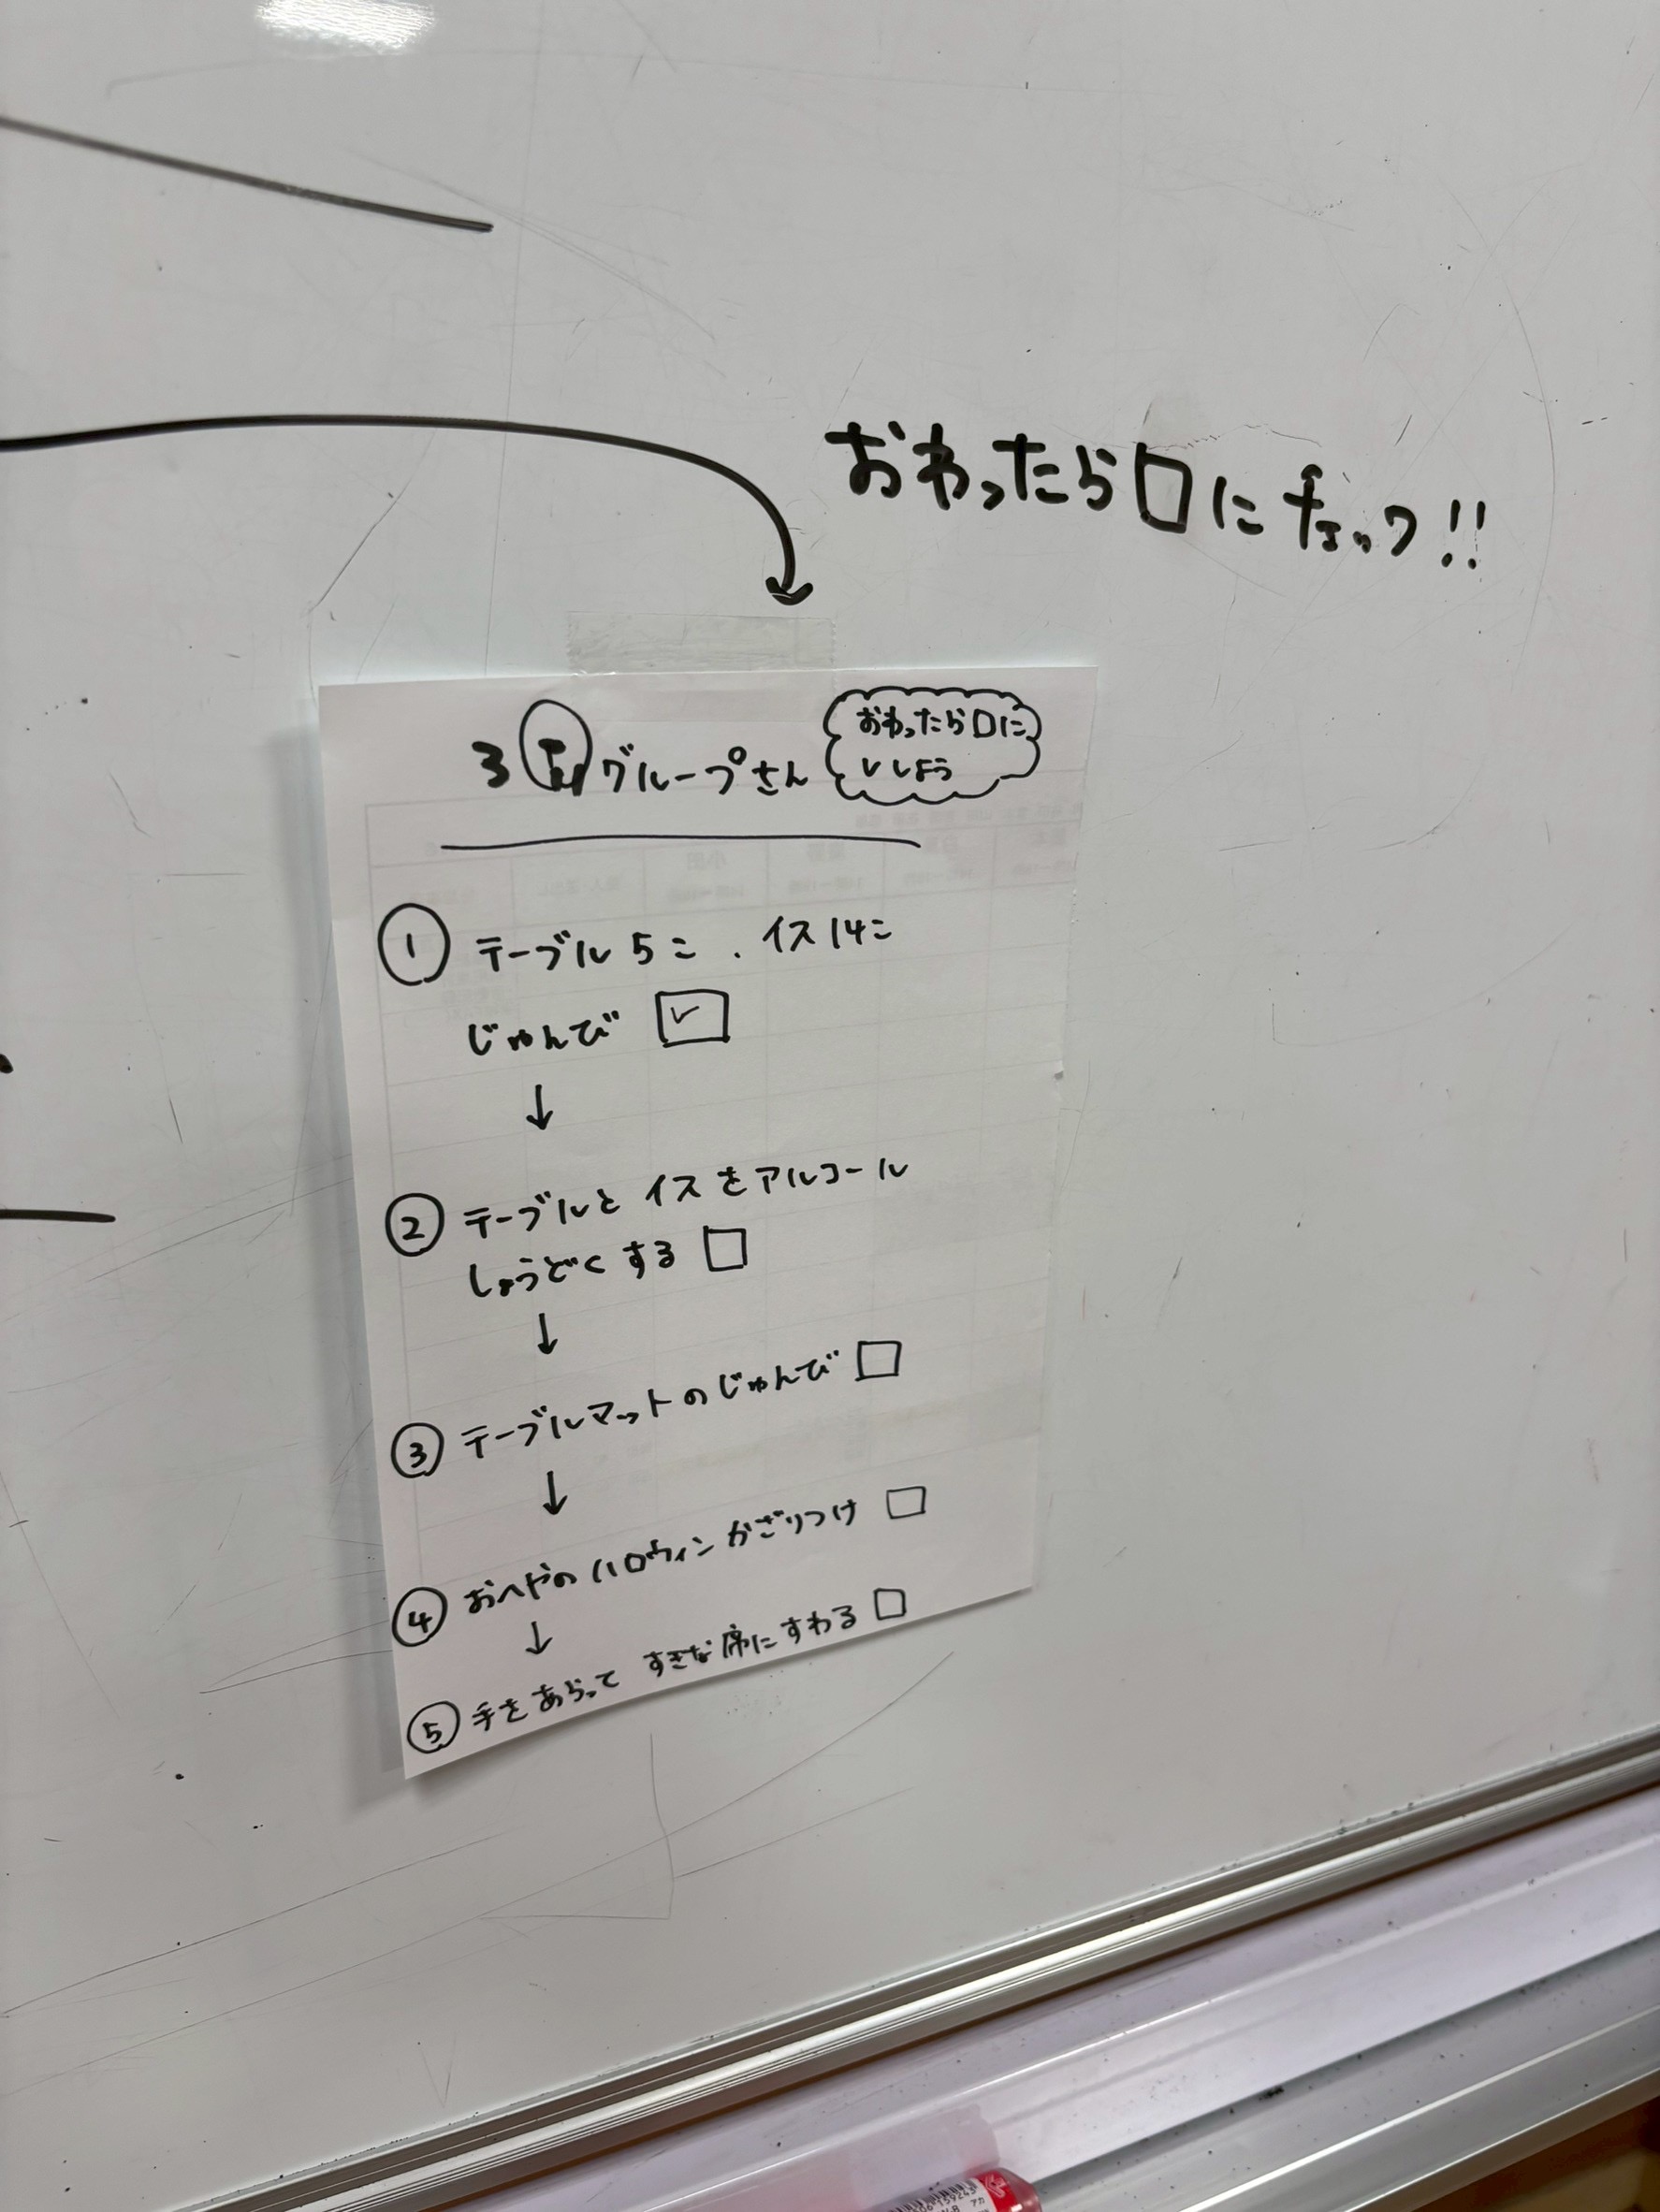 おわったら□にチェック!!
3 グループさん
おわったら□に
✓しよう
① テーブル5こ . イス14こ
じゅんび ☑
↓
② テーブルと イスをアルコール
しょうどくする □
↓
③ テーブルマットのじゅんび □
↓
④ おへやのハロウィンかざりつけ □
↓
⑤ 手をあらって すきな席にすわる □